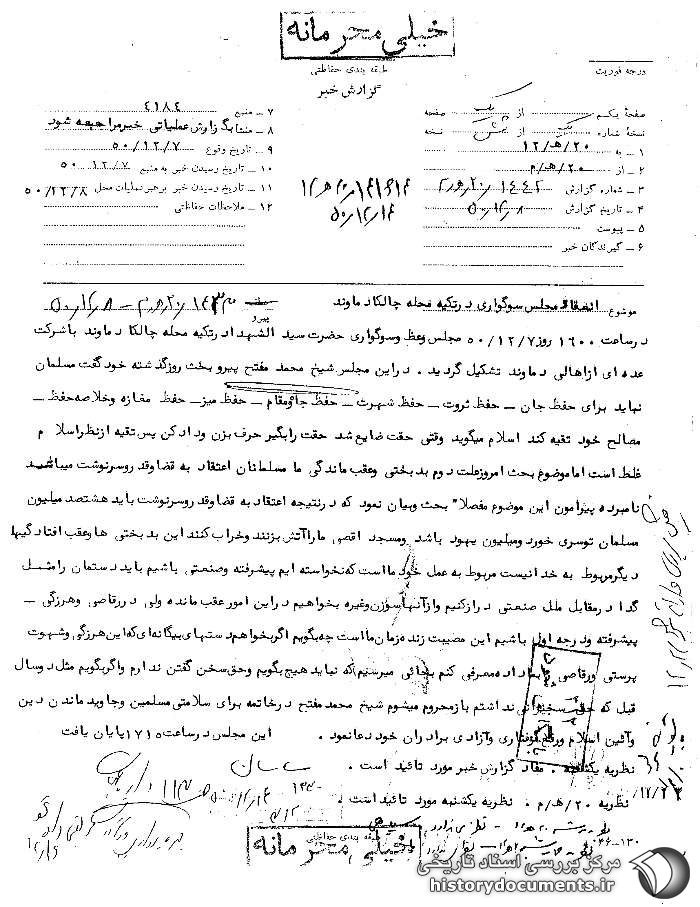 خیلی محرمانه
طبقه بندی حفاظتی
گزارش خبر
درجه فوریت
صفحه یکم از یک صفحه
نسخه شماره یک از شش نسخه
۱ ـ به ۲۰/هـ/۱۲
۲ ـ از ۲۰/هـ/م
۳ ـ شماره گزارش ۲۰/۱۴۴۲ هـ م
۴ ـ تاریخ گزارش ۵۰/۱۲/۸
۵ ـ پیوست
۶ ـ گیرندگان خبر
۷ ـ منبع ۴۱۸۴
۸ ـ منشا بگزارش عملیاتی خبر مراجعه شود
۹ ـ تاریخ وقوع ۵۰/۱۲/۷
۱۰ ـ تاریخ رسیدن خبر به منبع ۵۰/۱۲/۷
۱۱ ـ تاریخ رسیدن خبر به رهبر عملیات محل ۵۰/۱۲/۸
۱۲ ـ ملاحظات حفاظتی
۵۰/۱۲/۱۴
موضوع انعقاد مجلس سوگواری در تکیه محله چالکا دماوند
پیرو ۵۰/۱۲/۸
در ساعت ۱۶۰۰ روز ۵۰/۱۲/۷ مجلس وعظ و سوگواری حضرت سید الشهدا در تکیه محله چالکا دماوند با شرکت
عده ای از اهالی دماوند تشکیل گردید . در این مجلس شیخ محمد مفتح پیرو بحث روز گذشته خود گفت مسلمان
نباید برای حفظ جان ـ حفظ ثروت ـ حفظ شهرت ـ حفظ جا و مقام ـ حفظ میز ـ حفظ مغازه و خلاصه حفظ ـ
مصالح خود تقیه کند اسلام میگوید وقتی حقت ضایع شد حقت را بگیر حرف بزن و داد کن پس تقیه از نظر اسلام
غلط است اما موضوع بحث امروز علت دوم بدبختی و عقب ماندگی ما مسلمانان اعتقاد به قضا و قدر و سرنوشت میباشد
نامبرده پیرامون این موضوع مفصلا" بحث و بیان نمود که در نتیجه اعتقاد به قضا و قدر و سرنوشت باید هشتصد میلیون
مسلمان توسری خور دو میلیون یهود باشد و مسجد اقصی ما را آتش بزنند و خراب کنند این بدبختی ها و عقب افتادگیها
دیگر مربوط به خدا نیست مربوط به عمل خود ما است که نخواسته ایم پیشرفته و صنعتی باشیم باید دستمان را مثل
گدا در مقابل ملل صنعتی دراز کنیم و از آنها سوزن و غیره بخواهیم در این امور عقب مانده ولی در رقاصی و هرزگی ـ
پیشرفته و درجه اول باشیم این مصیبت زده زمان ما است چه بگویم اگر بخواهم دستهای بیگانه ای که این هرزگی و شهوت
پرستی و رقاصی را بما داده معرفی کنم بجائی میرسیم که نباید هیچ بگویم و حق سخن گفتن ندارم و اگر بگویم مثل دو سال
قبل که حق سخنرانی نداشتم باز محروم میشوم شیخ محمد مفتح در خاتمه برای سلامتی مسلمین و جاوید ماندن دین
و آئین اسلام و رفع گرفتاری و آزادی برادران خود دعا نمود . این مجلس در ساعت ۱۷۱۵ پایان یافت
نظریه یکشنبه . مفاد گزارش خبر مورد تائید است .
نظریه ۲۰/هـ/م . نظریه یکشنبه مورد تائید است .
۴۶-۱۳۰
طبقه بندی حفاظتی
خیلی محرمانه
مرکز بررسی اسناد تاریخی
historydocuments.ir